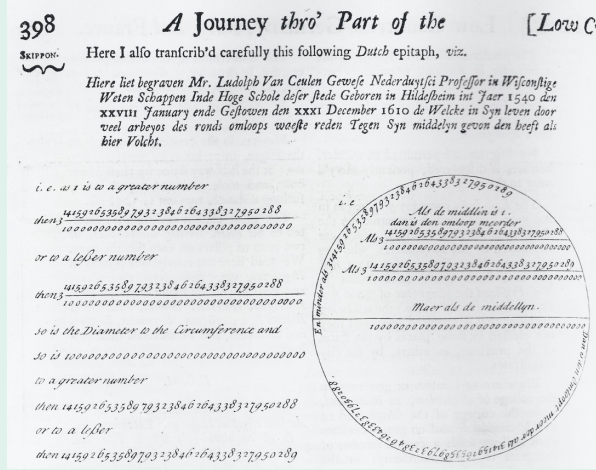 398
A Journey thro' Part of the
[Low C
SKIPPON.
Here I also transcrib'd carefully this following Dutch epitaph, viz.
Hiere liet begraven Mr. Ludolph Van Ceulen Gewese Nederduytsci Professor in Wisconstige
Weten Schappen Inde Hoge Schole deser stede Geboren in Hildesheim int Jaer 1540 den
XXVIII January ende Gestowen den XXXI December 1610 de Welcke in Syn leven door
veel arbeyos des ronds omloops waeste reden Tegen Syn middelyn gevon den heeft als
hier Volcht.
i. e. as 1 is to a greater number
then 3 14159265358979323846264338327950288
100000000000000000000000000000000000
or to a lesser number
then 3 14159265358979323846264338327950288
100000000000000000000000000000000000
so is the Diameter to the Circumference and
so is 100000000000000000000000000000000000
to a greater number
then 14159265358979323846264338327950288
or to a lesser
then 14159265358979323846264338327950289
i. e
Als de middlin is 1.
dan is den omloop meerder
Als 3 14159265358979323846264338327950288
100000000000000000000000000000000000
Als 3 14159265358979323846264338327950289
100000000000000000000000000000000000
Maer als de middellyn.
100000000000000000000000000000000000
En minder als 314159265358979323846264338327950289
Dan is den omloop meer der als 314159265358979323846264338327950288.